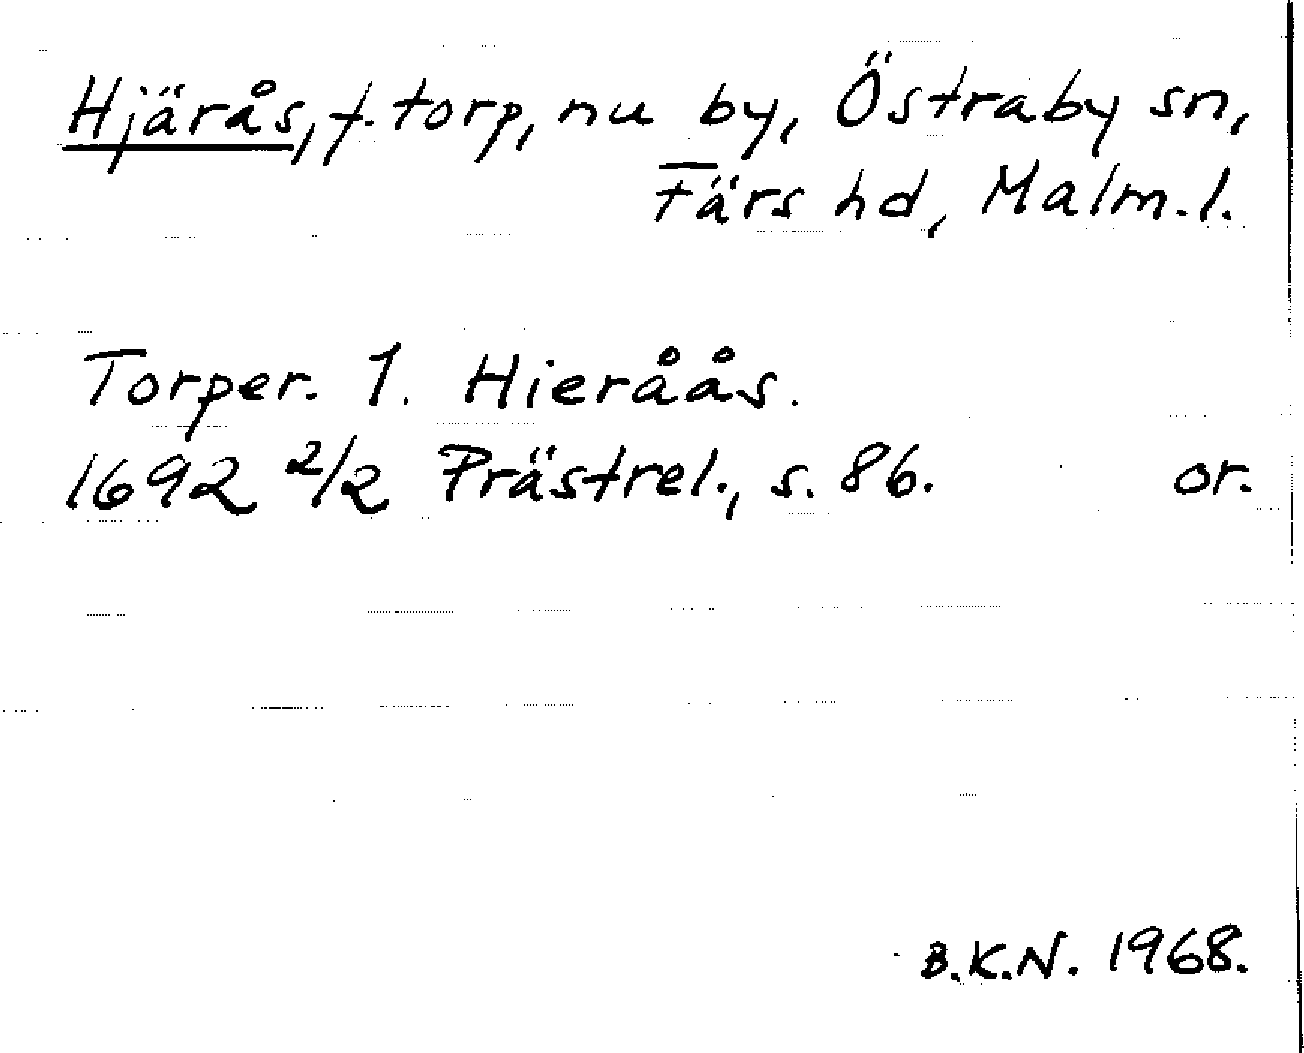 Hjärås, f. torp, nu by, Östraby sn,
Färs hd, Malm. l.
Torper. 1. Hieråås.
1692 2/2 Prästrel., s. 86. or.
B.K.N. 1968.